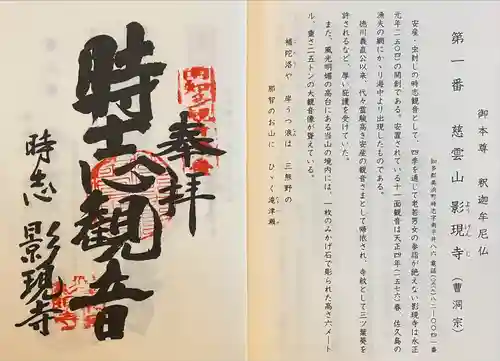 第一番 慈雲山 影現寺（曹洞宗）
ようげんじ
御本尊 釈迦牟尼仏
知多郡美浜町時志字南平井八六 電話（〇五六九）八二―〇〇四一番
安産・虫封じの時志観音として、四季を通じて老若男女の参詣が絶えない影現寺は永正
元年（一五〇四）の開創である。安置されている十一面観音は天正四年（一五七六）春、佐久島の
漁夫の網にかゝり海中より出現したものである。
徳川義直公以来、代々霊験高き安産の観音さまとして帰依され、寺紋として三ツ葉葵を
許されるなど、厚い庇護を受けていた。
また、風光明媚の高台にある当山の境内には、一枚のみかげ石で彫られた高さ六メート
ル、重さ二五トンの大観音像が聳えている。
補陀洛や 岸うつ浪は 三熊野の
那智のお山に ひゞく滝津瀬
奉拝
時志観音
時志 影現寺